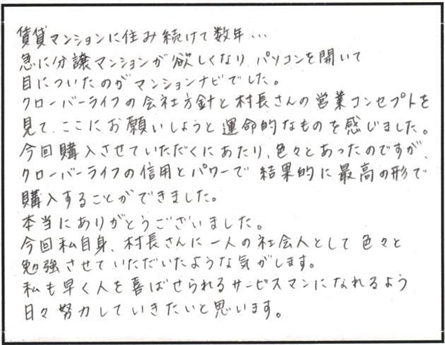 賃貸マンションに住み続けて数年…
急に分譲マンションが欲しくなり、パソコンを開いて
目についたのがマンションナビでした。
クローバーライフの会社方針と村長さんの営業コンセプトを
見て、ここにお願いしようと運命的なものを感じました。
今回購入させていただくにあたり、色々とあったのですが、
クローバーライフの信用とパワーで結果的に最高の形で
購入することができました。
本当にありがとうございました。
今回私自身、村長さんに一人の社会人として色々と
勉強させていただいたような気がします。
私も早く人を喜ばせられるサービスマンになれるよう
日々努力していきたいと思います。